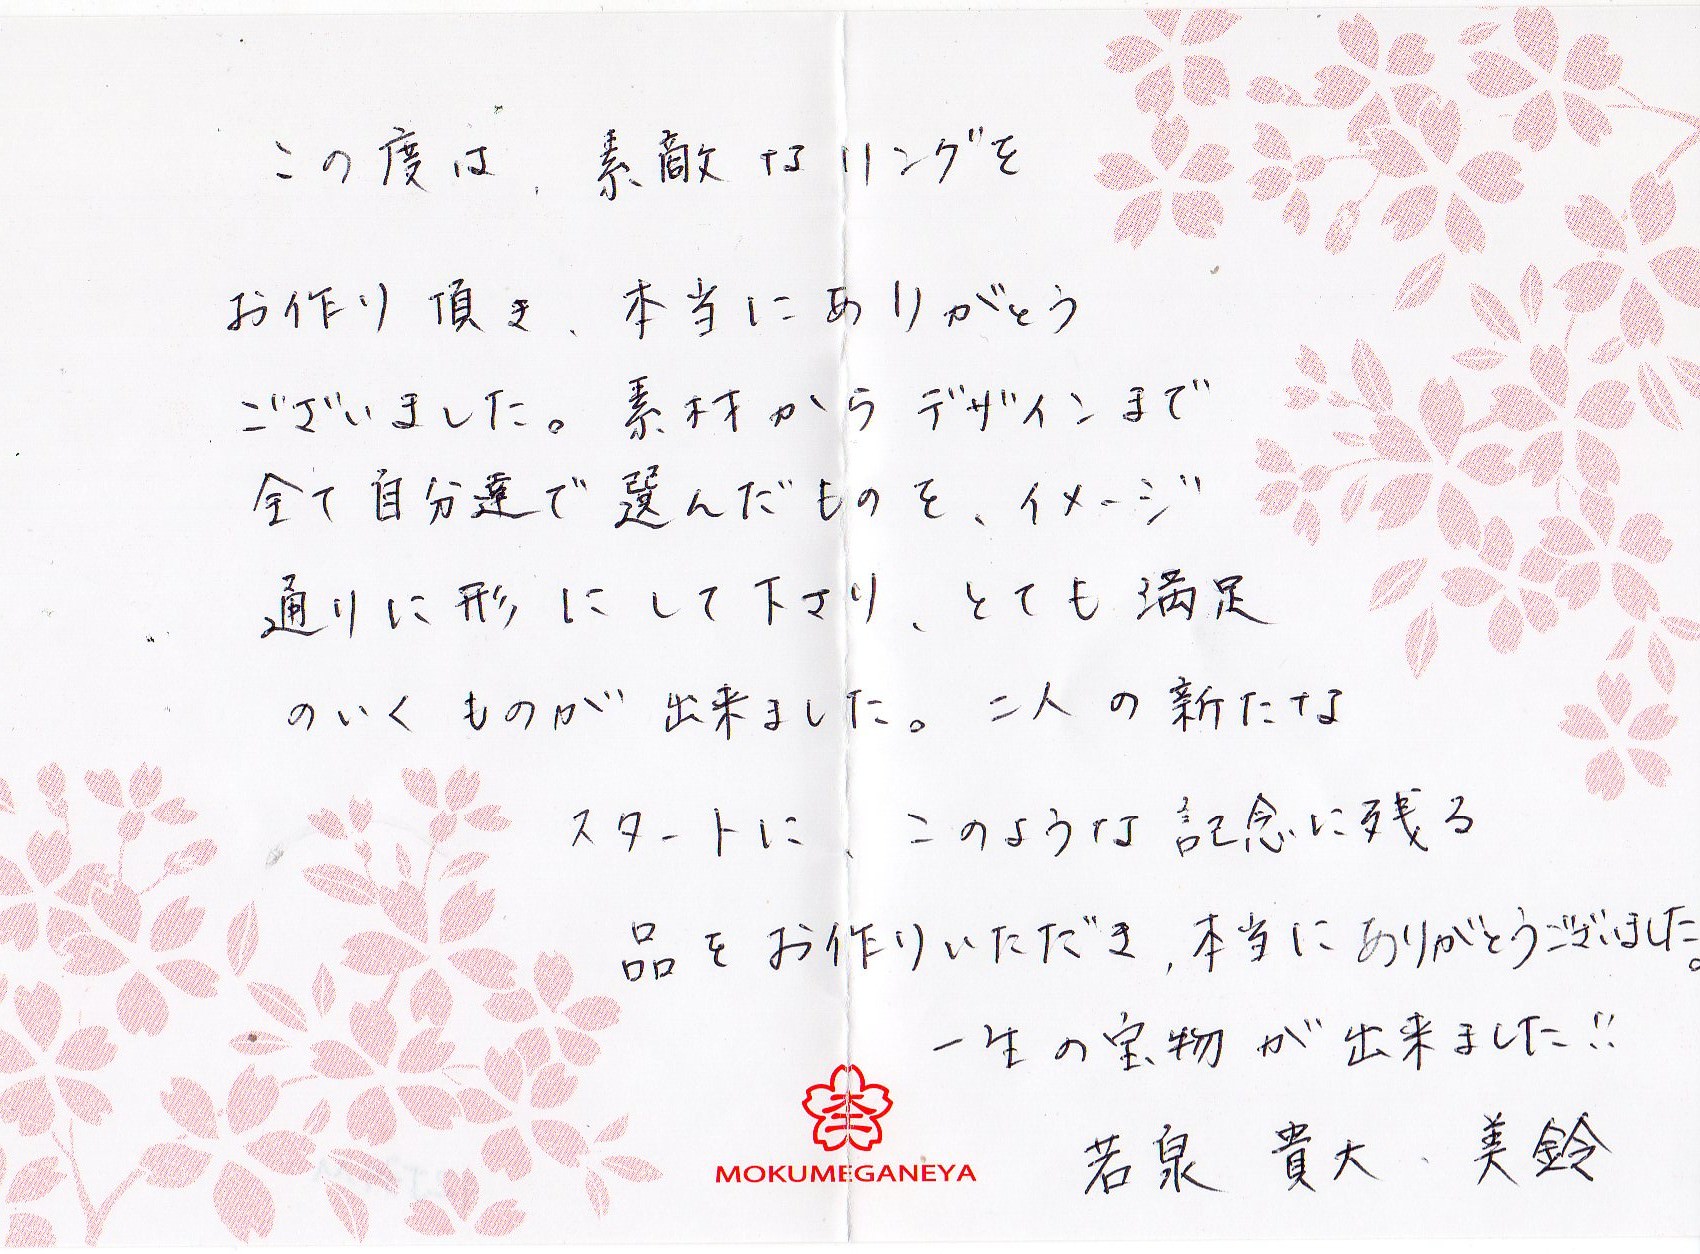 この度は、素敵なリングを
お作り頂き、本当にありがとう
ございました。素材からデザインまで
全て自分達で選んだものを、イメージ
通りに形にして下さり、とても満足
のいくものが出来ました。二人の新たな
スタートに、このような記念に残る
品をお作りいただき、本当にありがとうございました。
一生の宝物が出来ました!!
MOKUMEGANEYA
若泉 貴大、美鈴